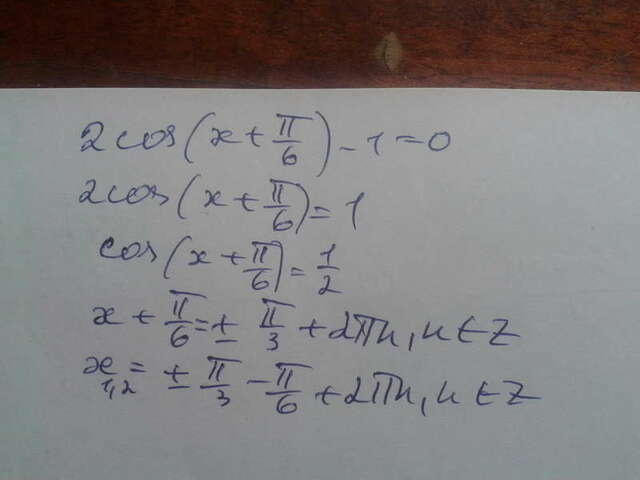 2cos(x+π/6)-1=0
2cos(x+π/6)=1
cos(x+π/6)=1/2
x+π/6=±π/3+2πn, n∈Z
x₁,₂=±π/3-π/6+2πn, n∈Z